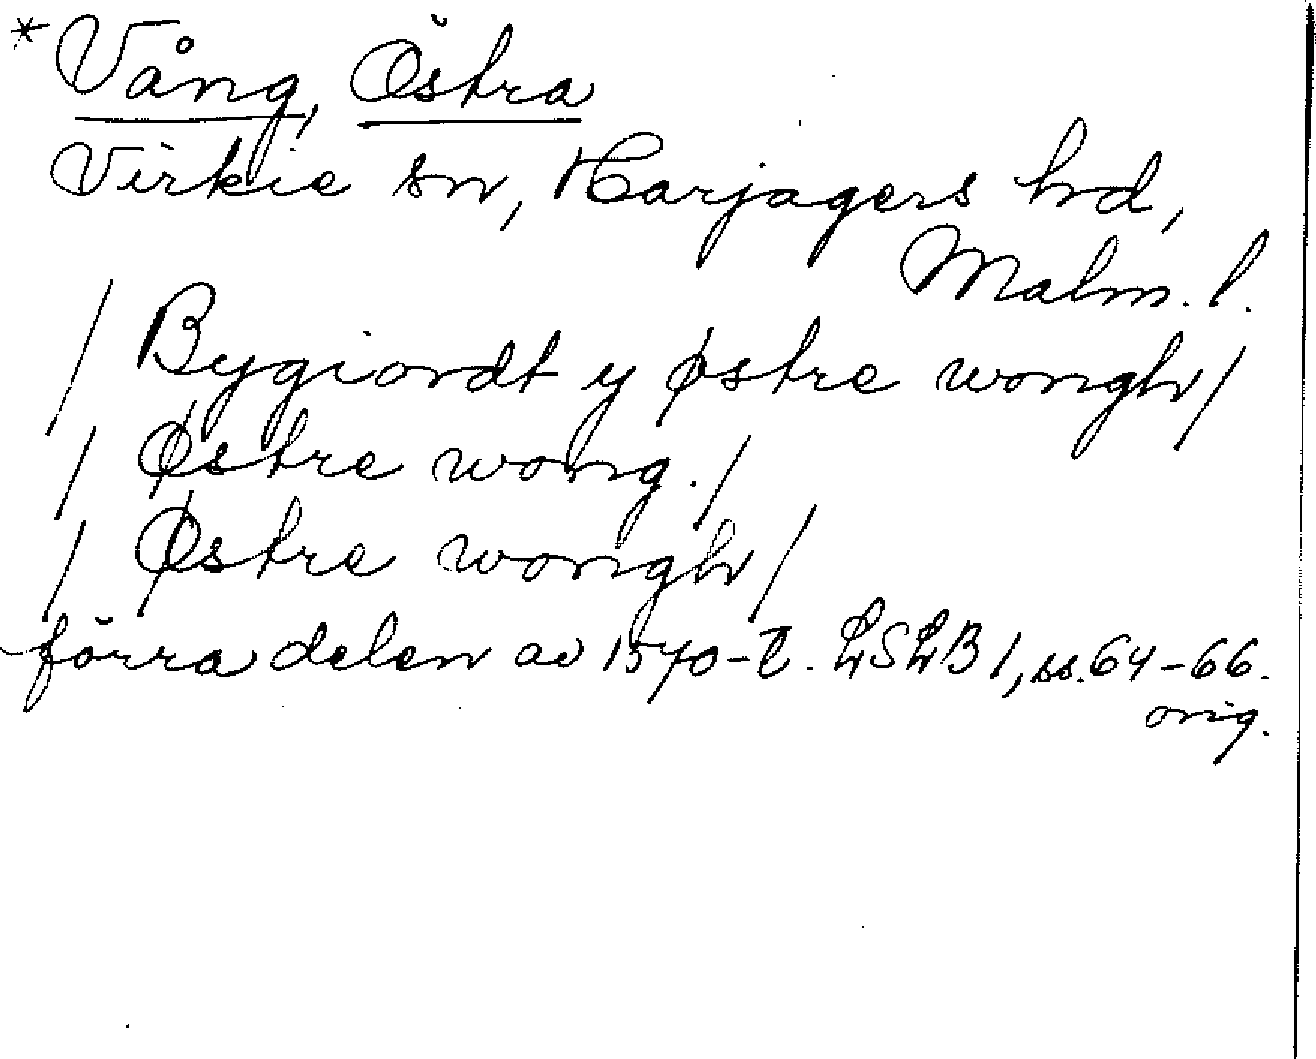 *Vång, Östra
Virkie sn, Harjagers hd,
Malm. l.
/ Bygiordt y østre wongh /
/ Østre wong. /
/ Østre wongh /
förra delen av 1570-t. LSLB 1, ss. 64-66.
orig.